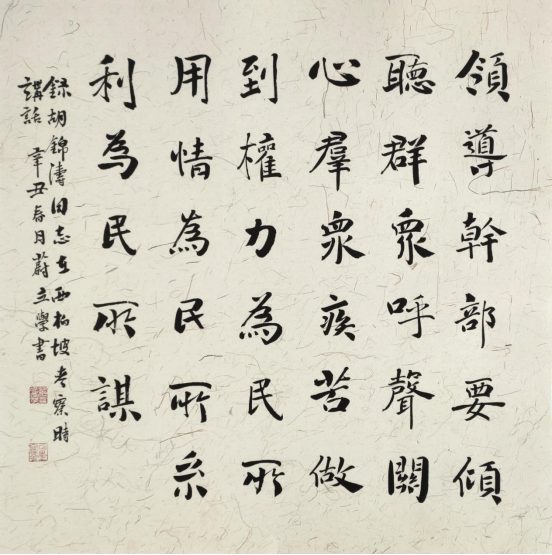 領導幹部要傾
聽群眾呼聲關
心羣眾疾苦做
到權力為民所
用情為民所系
利為民所謀
録胡錦濤同志在西柏坡考察時
講話 辛丑春月蔚立學書